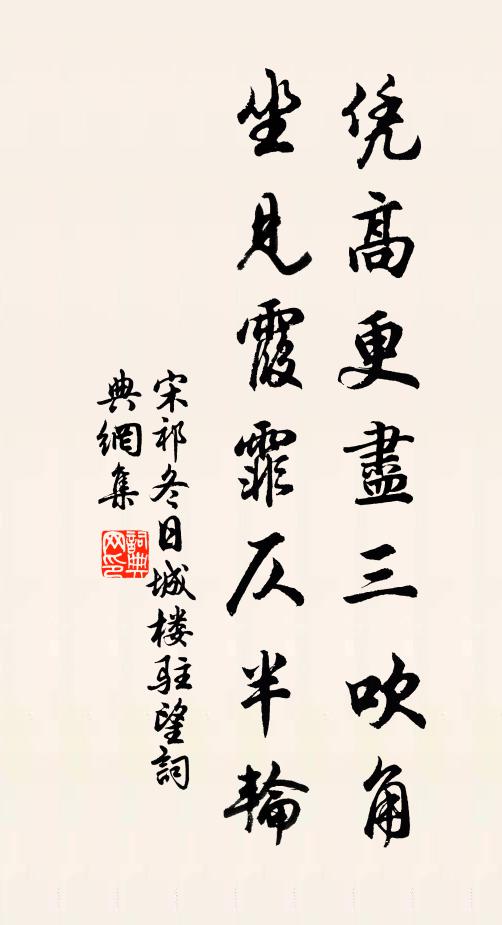 凭高更盡三吹角
坐見霞霏仄半輪
宋祁冬日城楼駐望詞
典網集
詞典
网印